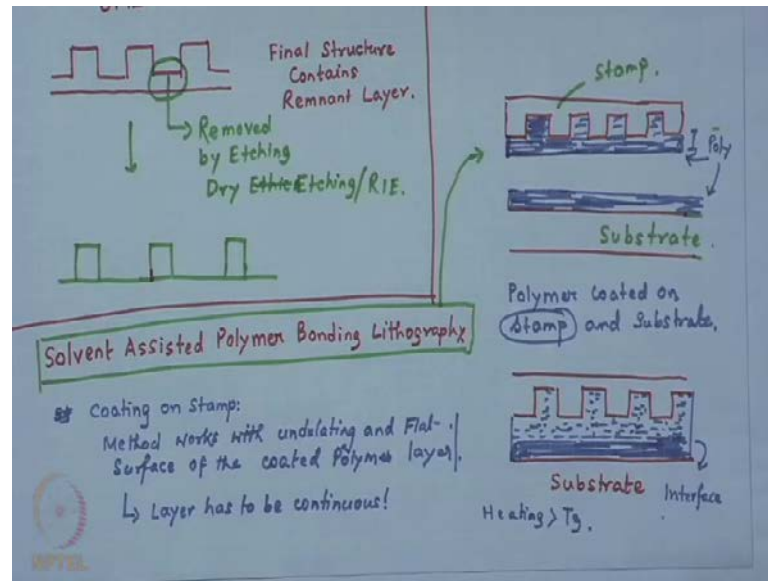 Final Structure
Contains
Remnant Layer.
Removed
by Etching
Dry Etching/RIE.
Solvent Assisted Polymer Bonding Lithography
Coating on Stamp:
Method works with undulating and Flat-
Surface of the coated Polymer layer.
Layer has to be continuous!
Stamp.
Poly
Substrate.
Polymer coated on
Stamp and Substrate.
Substrate
Interface
Heating > Tg.
NPTEL